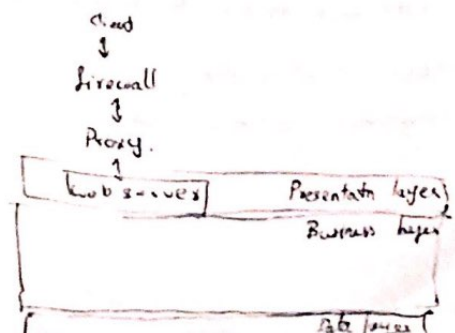 Client
Firewall
Proxy.
Web server Presentatn layer
Business layer
Data layer